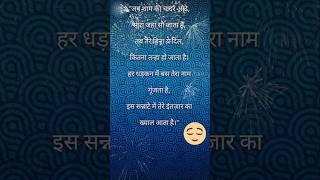 "जब शाम की चादर ओढ़े,
सारा जहां सो जाता है,
तब तेरे बिना ये दिल,
कितना तन्हा हो जाता है।
हर धड़कन में बस तेरा नाम
गूंजता है,
इस सन्नाटे में तेरे इंतज़ार का
ख्याल आता है।"